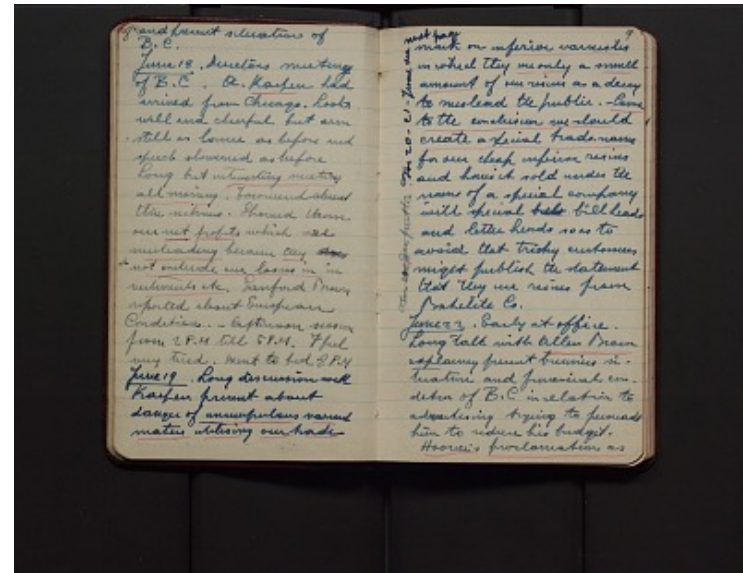 and present situation of
B.C.
June 18. Directors meeting
of B.C. A. Karpen had
arrived from Chicago. Looks
well and cheerful but arm
still as lame as before and
speech slowered as before
Long but interesting meeting
all morning. I
our net profits which
misleading because they
not include our losses in in
vestments etc. Sanford Brown
reported about European
Conditions. - Afternoon session
from 2 P.M till 5 P.M. I feel
very tired. Went to bed 9 P.M
June 19. Long discussion with
Karpen present about
danger of unscrupulous varnish
makers utilising our trade
9
mark on inferior varnishes
in which they use only a small
amount of our resins as a decoy
to mislead the public. - Came
to the conclusion we should
create a special trade name
for our cheap inferior resins
and have it sold under the
name of a special company
with special bill heads
and letter heads so as to
avoid that tricky customers
might publish the statement
that they use resins from
Bakelite Co.
June 22. Early at office.
Long talk with Allen Brown
explaining present business si-
tuation and financial con-
dition of B.C in relation to
advertising trying to persuade
him to reduce his budget.
Hoover's proclamation as
June 20-21. see
next page